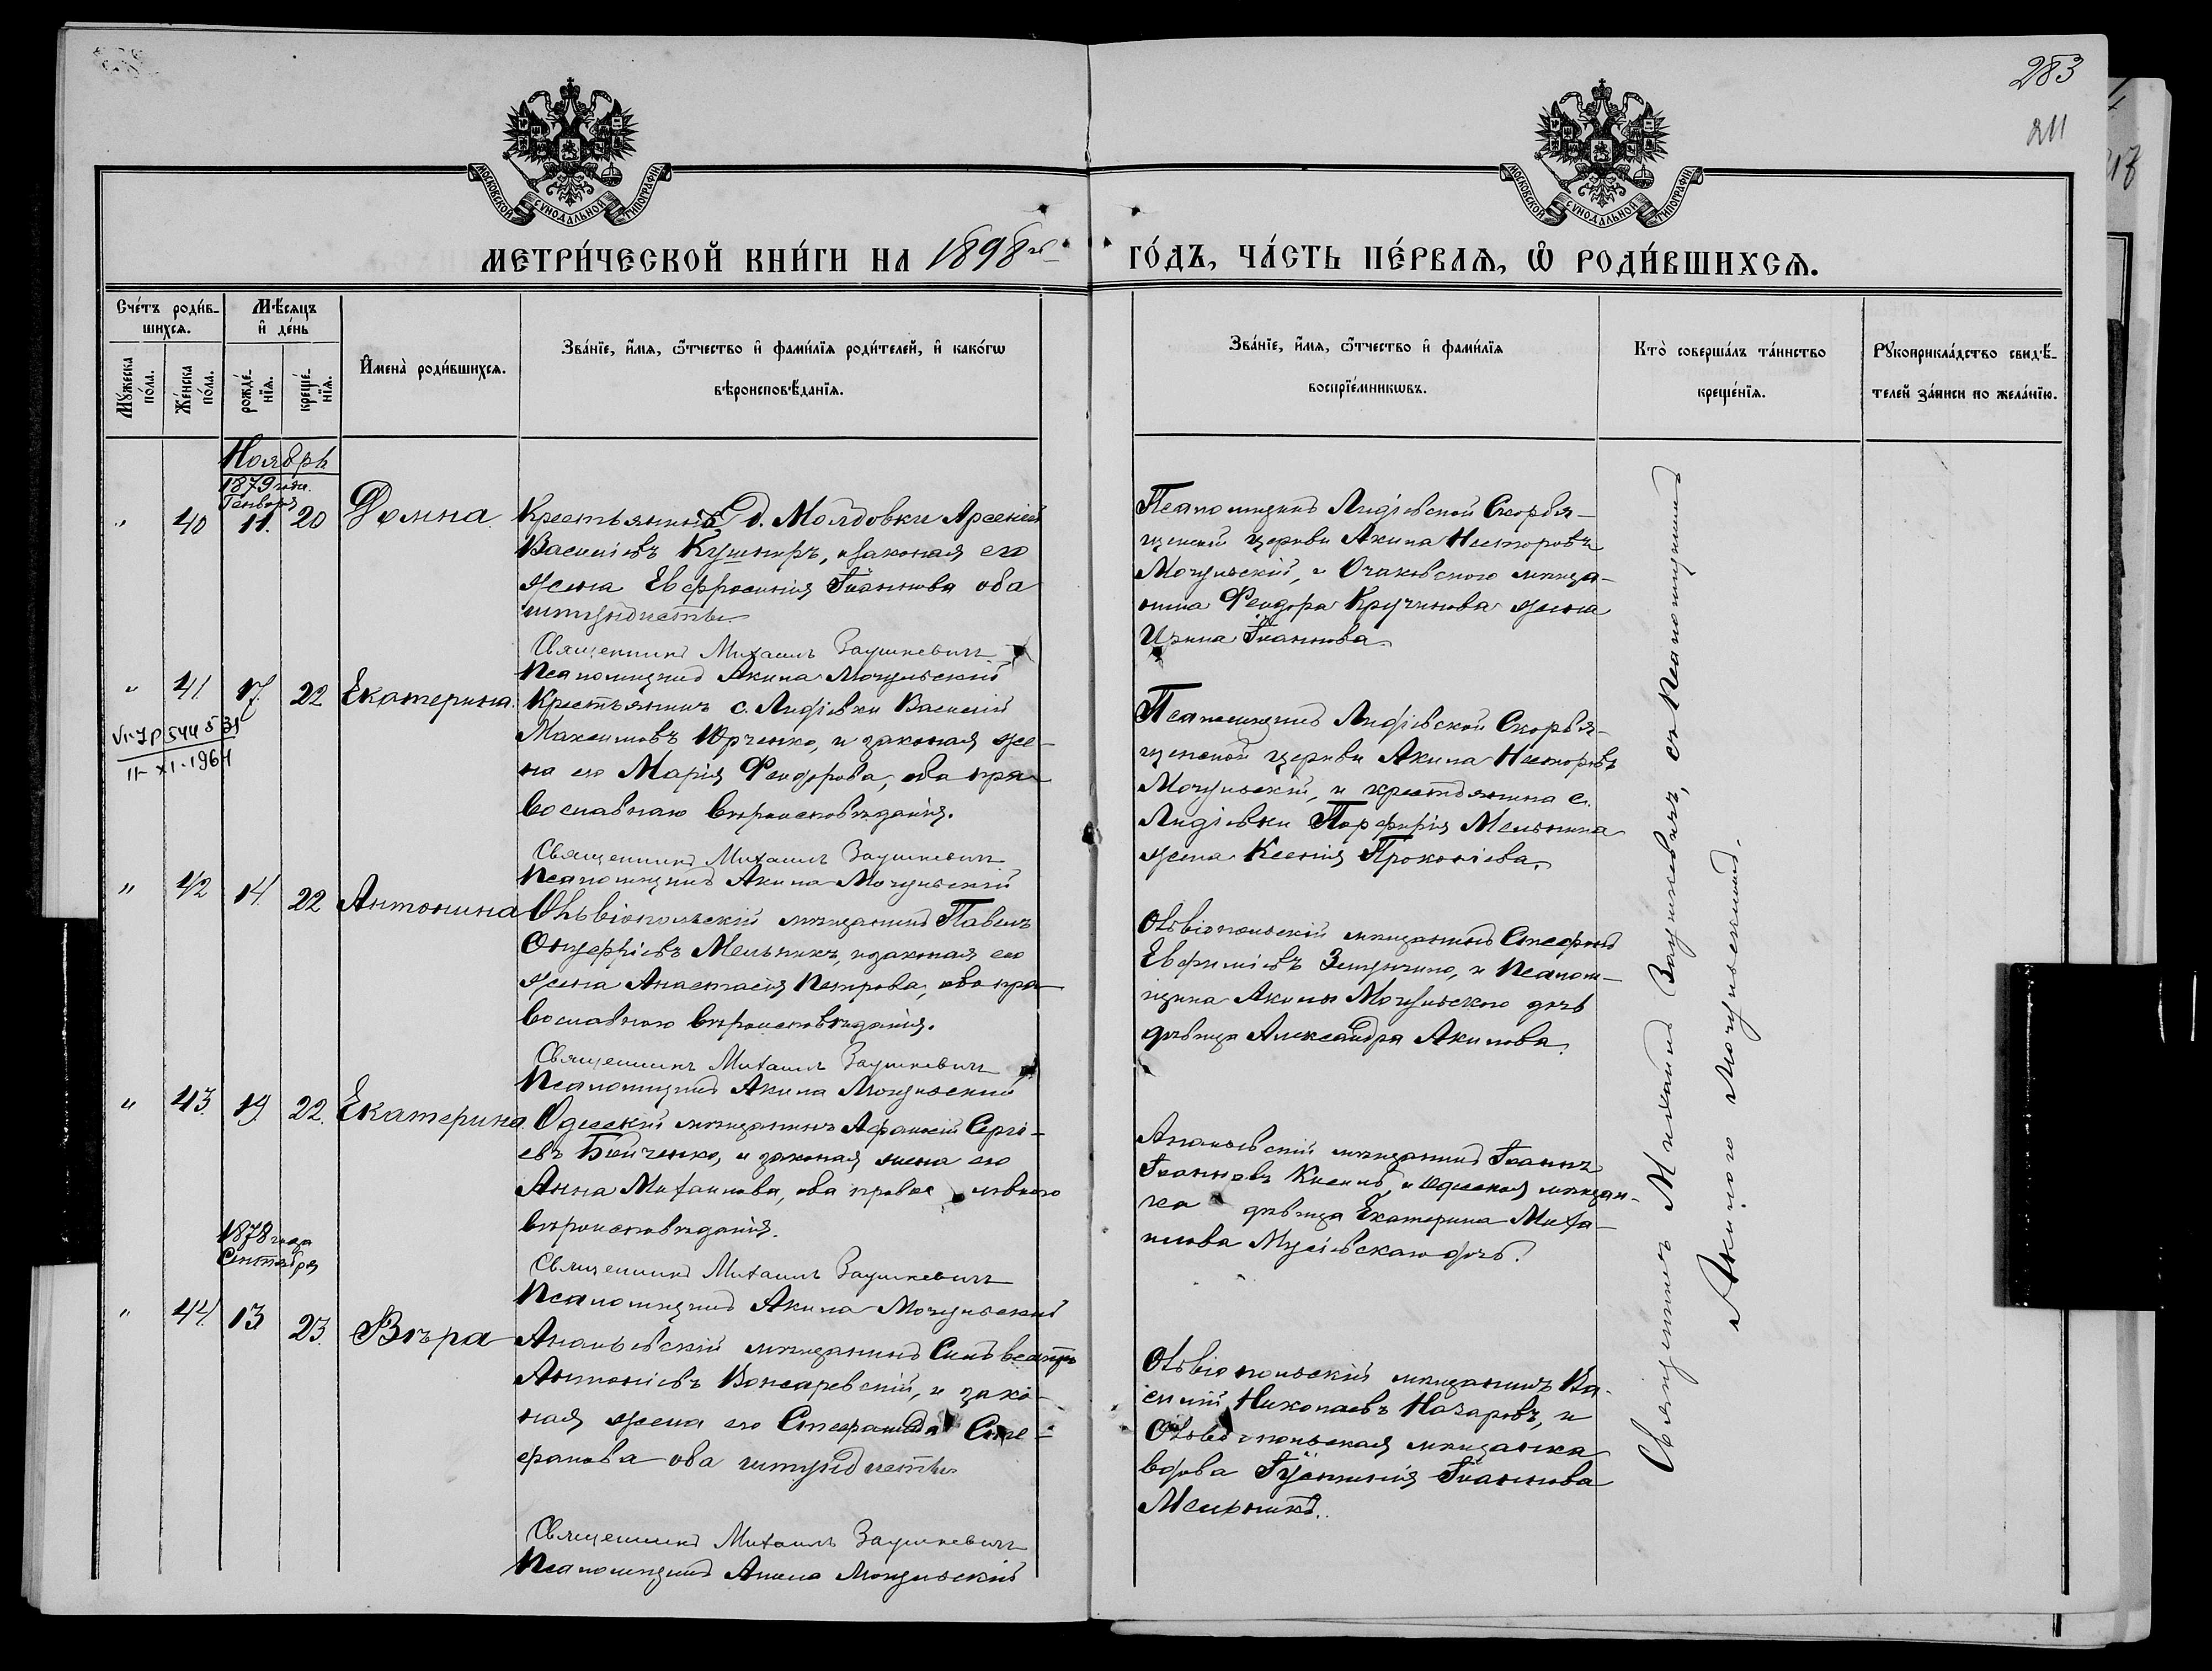 283
211
МОСКОВСКОЙ СѴНОДАЛЬНОЙ ТИПОГРАФІИ
МОСКОВСКОЙ СѴНОДАЛЬНОЙ ТИПОГРАФІИ
МЕТРИ́ЧЕСКОЙ КНИ́ГИ НА 1898й
ГО́ДЪ, ЧА́СТЬ ПЕ́РВАѦ, Ѽ РОДИ́ВШИХСѦ.
Сче́тъ роди́в-
шихсѧ.
Мꙋжеска
по́ла.
Же́нска
по́ла.
Мѣ́сѧцъ
и҆ де́нь
рожде́-
нїѧ.
креще́-
нїѧ.
И҆мена̀ роди́вшихсѧ.
Зва́нїе, и҆́мѧ, ѻ҆́тчество и҆ фами́лїѧ роди́телей, и҆ како́гѡ
вѣроисповѣ́данїѧ.
Зва́нїе, и҆́мѧ, ѻ҆́тчество и҆ фами́лїѧ
воспрїе́мникѡвъ.
Кто̀ соверша́лъ та́инство
креще́нїѧ.
Рꙋкоприкла́дство свидѣ́-
телей за́писи по жела́нїю.
Ноябрь
1879 года
Генваря
" 40 11. 20 Домна
Крестьянинъ д. Молдовки Арсеній
Василіевъ Кушниръ, и законая его
жена Евфросинія Іоаннова оба
штундисты
Священникъ Михаилъ Заушкевичъ
Псаломщикъ Акила Могульскій
Псаломщикъ Лидіевской Скорбя-
щенской церкви Акила Несторовъ
Могульскій, и Очаковского мѣща-
нина Феодора Кручинова жена
Ирина Іоаннова.
" 41 17. 22 Екатерина.
11-XI-1964
Крестьянинъ с. Лидіевки Василій
Максимовъ Юрченко, и законая же-
на его Марія Феодорова, оба пра-
вославнаго вѣроисповѣданія.
Священникъ Михаилъ Заушкевичъ
Псаломщикъ Акила Могульскій
Псаломщикъ Лидіевской Скорбя-
щенской церкви Акила Несторовъ
Могульскій, и крестьянина с.
Лидіевки Порфирія Мельника
жена Ксенія Прокопіева.
" 42 14 22 Антонина
Ольвіопольскій мѣщанинъ Павелъ
Онуфріевъ Мельникъ, и законая его
жена Анастасія Петрова, оба пра-
вославного вѣроисповѣданія.
Священникъ Михаилъ Заушкевичъ
Псаломщикъ Акила Могульскій
Ольвіопольскій мѣщанинъ Стефанъ
Евфиміевъ и Псалом-
щика Акилы Могульского дочь
дѣвица Александра Акилова.
" 43. 19. 22. Екатерина
Одесскій мѣщанинъ Афанасій Сергі-
евъ Бойченко, и законая жена его
Анна Михаилова, оба православного
вѣроисповѣданія.
Священникъ Михаилъ Заушкевичъ
Псаломщикъ Акила Могульскій
Ананьевскій мѣщанинъ Іоаннъ
Іоанновъ и Одесская мѣщан-
ка дѣвица Екатерина Миха-
илова
1878 года
Сентября
" 44. 13 23. Вѣра
Ананьевскій мѣщанинъ Сильвестръ
Антоніевъ и зако-
ная жена его Стефанида Сте-
фанова оба штундисты
Священникъ Михаилъ Заушкевичъ
Псаломщикъ Акила Могульскій
Ольвіопольскій мѣщанинъ Ва-
силій Николаевъ Назаровъ, и
Ольвіопольская мѣщанка
вдова Іустинія Іоаннова
Мельникъ.
Священникъ Михаилъ Заушкевичъ, съ Псаломщикомъ
Акилою Могульскимъ.